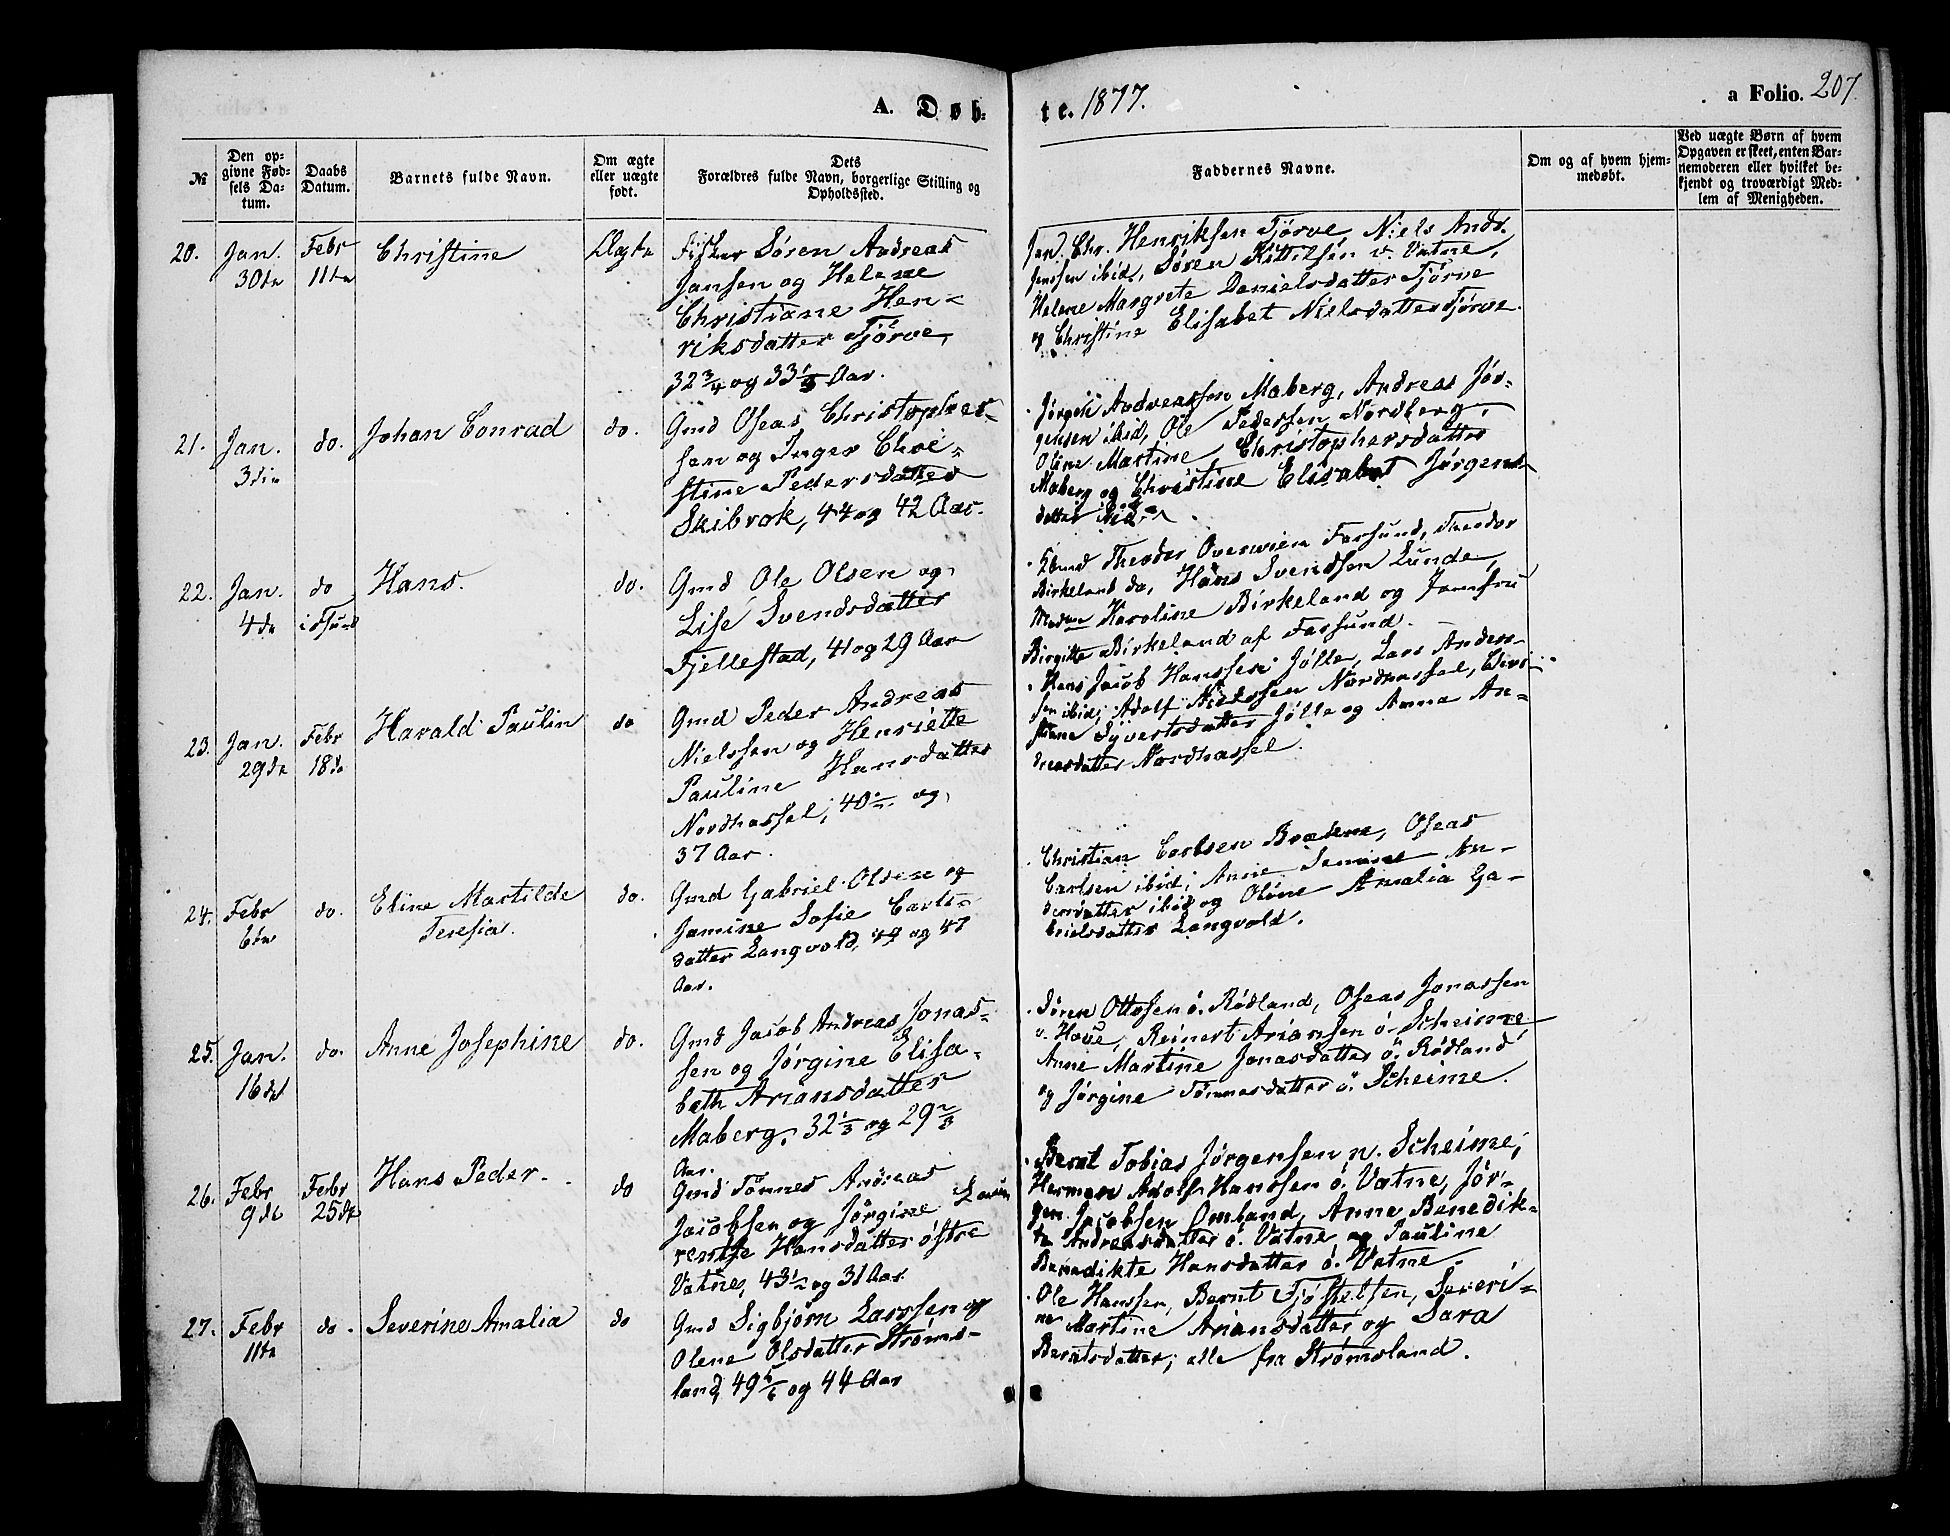 A. Døb-
te. 1877.
a Folio. 207
№
Den op-
givne Fød-
sels Da-
tum.
Daabs
Datum.
Barnets fulde Navn.
Om ægte
eller uægte
født.
Dets
Forældres fulde Navn, borgerlige Stilling og
Opholdssted.
Faddernes Navne.
Om og af hvem hjem-
medøbt.
Ved uægte Børn af hvem
Opgaven er skeet, enten Bar-
nemoderen eller hvilket be-
kjendt og troværdigt Med-
lem af Menigheden.
20.
Jan.
30te
Febr
11te
Christine
Ægte
Fisker Søren Andreas
Jansen og Helene
Christiane Hen-
riksdatter Tjørve,
32 3/4 og 33 1/3 Aar.
Chr. Henriksen Tjørve, Niels Andr.
Janssen ibid, Søren Kittilsen v. Vatne,
Helene Margrete Danielsdatter Tjørve
og Christine Elisabet Nielsdatter Tjørve.
21.
Jan.
3die
do.
Johan Conrad
do.
Gmd Oseas Christopher-
sen og Inger Chri-
stine Pedersdatter
Skibrok, 44 og 42 Aar.
Jørgen Andreassen Maberg, Andreas Jør-
gensen ibid, Ole Pedersen Nordberg,
Oline Martine Christophersdatter
Maberg og Christine Elisabet Jørgens-
datter ibid.
22.
Jan.
4de
do
i Fsund
Hans.
do.
Gmd Ole Olsen og
Lise Svendsdatter
Fjellestad, 41 og 29 Aar
Theodor Overwien Farsund, Theodor
Birkeland do, Hans Svendsen Lunde,
Madm Karoline Birkeland og Jomfru
Birgitte Birkeland af Farsund.
23.
Jan.
29de
Febr
18de
Harald Paulin
do
Gmd Peder Andreas
Nielsen og Henriette
Pauline Hansdatter
Nordhassel, 40 1/2 og
37 Aar.
Hans Jacob Hanssen Jølle, Lars Anders-
sen ibid, Adolf Nielsen Nordhassel, Chri-
stiane Syvertsdatter Jølle og Anna An-
dreasdatter Nordhassel.
24.
Febr
6te
do.
Eline Martilde
Teresia.
do.
Gmd Gabriel Olsen og
Jamine Sofie Carls-
datter Langvold, 49 og 47
Aar.
Christian Carlsen Brædene, Oseas
Carlsen ibid, Anne An-
dersdatter ibid og Oline Amalia Ga-
brielsdatter Langvold.
25.
Jan.
16de
do.
Anne Josephine
do.
Gmd Jacob Andreas Jonas-
sen og Jørgine Elisa-
beth Ariansdatter
Maberg, 32 1/3 og 29 2/3
Aar.
Søren Ottosen ø. Rødland, Oseas Jonassen
v. Have, Reinert Ariansen ø. Scheime
Anne Martine Jonasdatter ø. Rødland
og Jørgine Tønnesdatter ø. Scheime.
26.
Febr
9de
Febr
25de
Hans Peder.
do
Gmd Tønnes Andreas
Jacobsen og Jørgine Lau
rentse Hansdatter østre
Vatne, 43 1/2 og 31 Aar
Bernt Tobias Jørgensen n. Scheime,
Herman Adolf Hanssen ø. Vatne, Jør-
gen Jacobsen Omland, Anne Benedik-
te Andreasdatter ø. Vatne og Pauline
Benedikte Hansdatter ø. Vatne.
27.
Febr
11te
do.
Severine Amalia
do
Gmd Sigbjørn Larssen og
Olene Olsdatter Strøms-
land, 49 5/6 og 44 Aar
Ole Hanssen, Bernt Tjøstelsen, Severi-
ne Martine Ariansdatter og Sara
Berntsdatter, alle fra Strømsland.